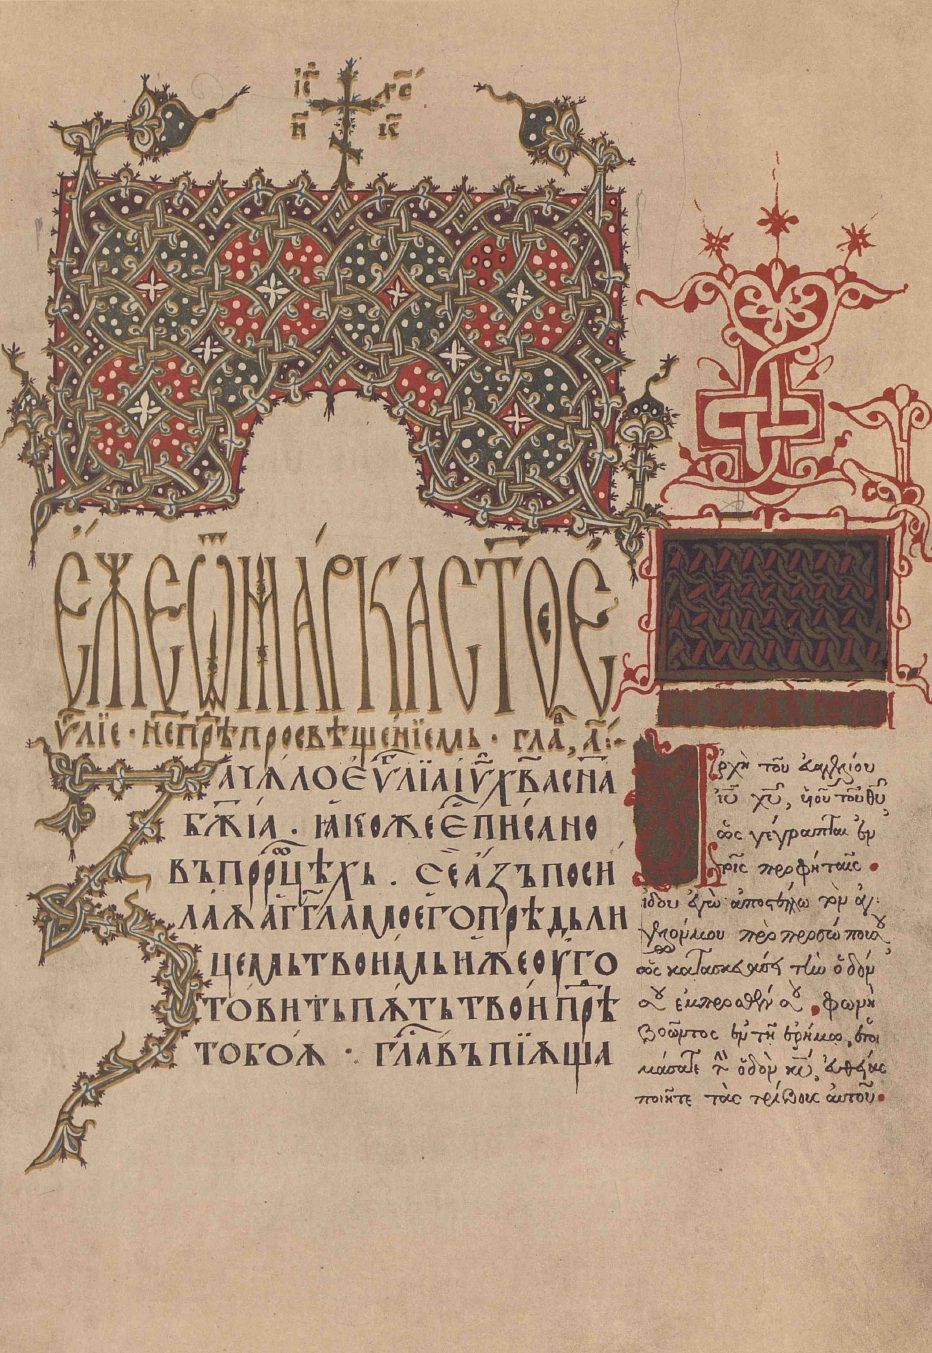 і҃с х҃с
н и к
ЕЖЕ Ѿ МАРКА СТ҃ОЕ
Е҃ѴЛЇЕ · НЕ ПРѢ ПРОСВѢЩЕНЇЕМЬ · ГЛА, А҃ :·
ЗАЧѦЛО Е҃ѴЛЇА І҃Ѵ Х҃ВА СН҃А
Б҃ЖІА · ꙖКОЖЕ Е҃ ПИСАНО
ВЪ ПРР҃ОЦѢХЬ · СЕ АЗЪ ПОСИ
ЛАѪ АГ҃ГЛА МОЕГО ПРѢДЬ ЛИ
ЦЕМЬ ТВОИМЬ ИЖЕ ОУГО
ТОВИТЬ ПѪТЬ ТВОИ ПРѢ
ТОБОѪ · ГЛ҃А ВЪПЇѪЩА
Ἀρχὴ τοῦ εὐαγγελίου
ἰῦ χῦ, υἱοῦ τοῦ θυ
ὡς γέγραπται ἐν
τοῖς προφήταις
ἰδοὺ ἐγὼ ἀποστέλλω τὸν ἄγ
γελόν μου πρὸ προσώπου σου
ὃς κατασκευάσει τὴν ὁδόν
σου ἔμπροσθέν σου. φωνὴ
βοῶντος ἐν τῇ ἐρήμῳ, ἑτοι
μάσατε τὴν ὁδὸν κυ, εὐθείας
ποιεῖτε τὰς τρίβους αὐτοῦ